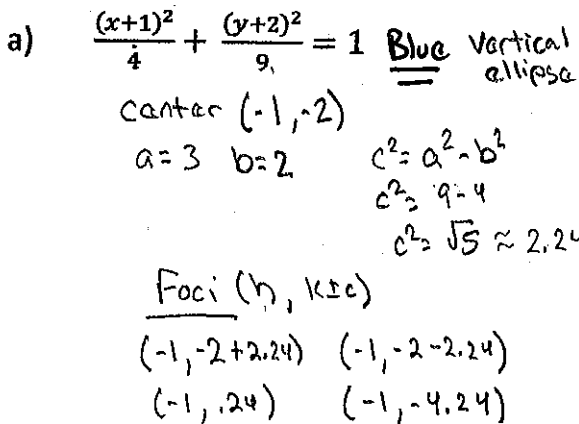 a) (x+1)²/4 + (y+2)²/9 = 1 Blue Vertical ellipse
center (-1,-2)
a=3 b=2 c²=a²-b²
c²=9-4
c²=√5≈2.24
Foci (h, k±c)
(-1,-2+2.24) (-1,-2-2.24)
(-1,.24) (-1,-4.24)